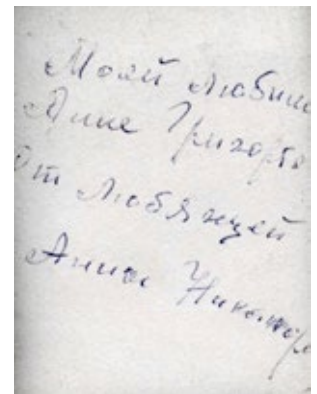 Моей любимо
Анне Григорь
От любящей
Анны Никола